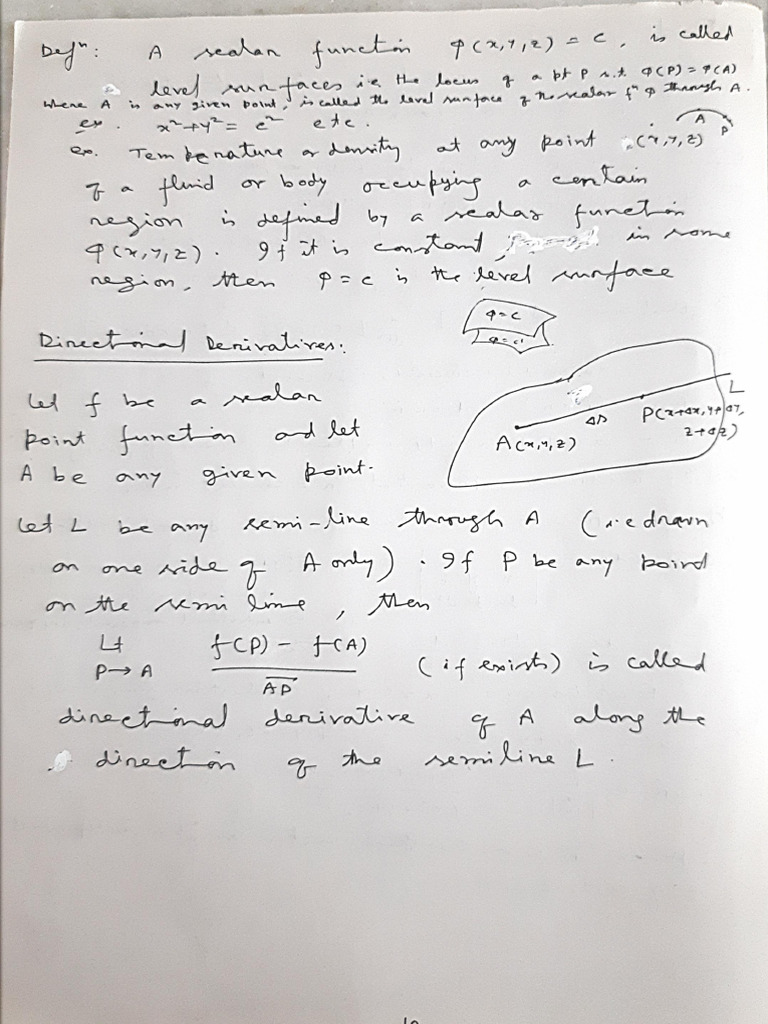 Defⁿ: A scalar function φ(x,y,z) = c, is called
level surfaces i.e the locus of a pt P s.t. φ(P) = φ(A)
where A is any given point, is called the level surface of the scalar fⁿ φ through A.
ex. x²+y² = c² etc.
A
P
ex. Temperature or density at any point (x,y,z)
of a fluid or body occupying a certain
region is defined by a scalar function
φ(x,y,z). If it is constant in some
region, then φ=c is the level surface
φ=c
φ=c1
Directional Derivatives:
Let f be a scalar
point function and let
A be any given point.
L
Δs
P(x+Δx, y+Δy,
z+Δz)
A(x,y,z)
Let L be any semi-line through A (i.e drawn
on one side of A only). If P be any point
on the semi line, then
Lt f(P) - f(A)
P→A AP (if exists) is called
directional derivative of A along the
direction of the semiline L.